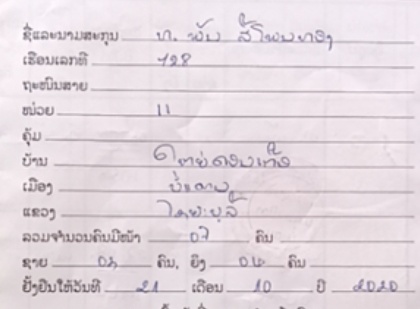 ຊື່ແລະນາມສະກຸນ ທ. ພັນ ສີໂພນທອງ
ເຮືອນເລກທີ 128
ຖະໜົນສາຍ
ໜ່ວຍ 11
ຄຸ້ມ
ບ້ານ
ເມືອງ
ແຂວງ ໄຊຍະບູລີ
ລວມຈຳນວນຄົນມີໜ້າ 07 ຄົນ
ຊາຍ 03 ຄົນ, ຍິງ 04 ຄົນ
ຢັ້ງຢືນໃຫ້ວັນທີ 21 ເດືອນ 10 ປີ 2020